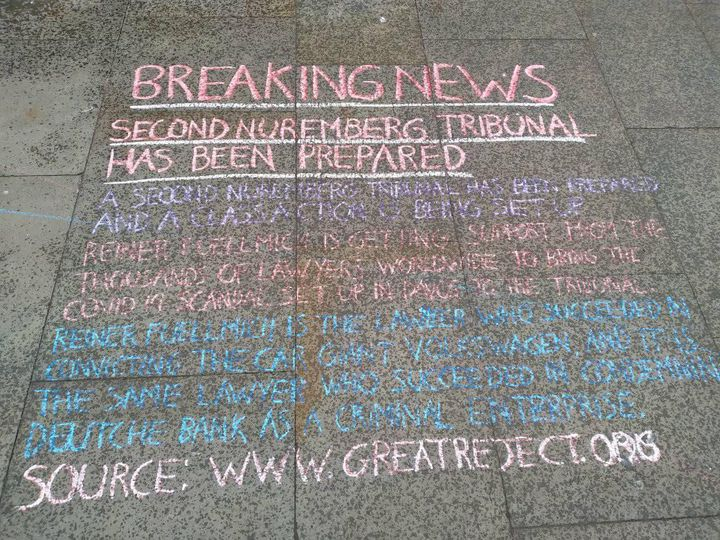 BREAKING NEWS
SECOND NUREMBERG TRIBUNAL
HAS BEEN PREPARED
A SECOND NUREMBERG TRIBUNAL HAS BEEN PREPARED
AND A CLASS ACTION IS BEING SET UP
REINER FUELLMICH IS GETTING SUPPORT FROM THE
THOUSANDS OF LAWYERS WORLDWIDE TO BRING THE
COVID 19 SCANDAL SET UP IN DAVOS TO THE TRIBUNAL
REINER FUELLMICH IS THE LAWYER WHO SUCCEEDED IN
CONVICTING THE CAR GIANT VOLKSWAGEN, AND IT IS
THE SAME LAWYER WHO SUCCEEDED IN CONDEMNING
DEUTCHE BANK AS A CRIMINAL ENTERPRISE.
SOURCE: WWW.GREATREJECT.ORG